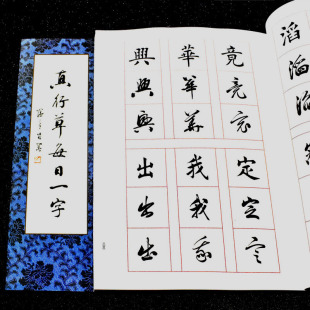 真行草每日一字
竟竟竟
華華華
興興興
定定定
我我我
出出出
滔滔滔